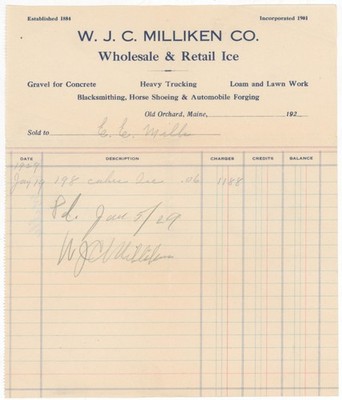 Established 1884 Incorporated 1904
W. J. C. MILLIKEN CO.
Wholesale & Retail Ice
Gravel for Concrete Heavy Trucking Loam and Lawn Work
Blacksmithing, Horse Shoeing & Automobile Forging
Old Orchard, Maine, 192
Sold to
DATE DESCRIPTION CHARGES CREDITS BALANCE
1929
198 cakes Ice .06 1188
Pd. Jan 5/29
W J C Milliken